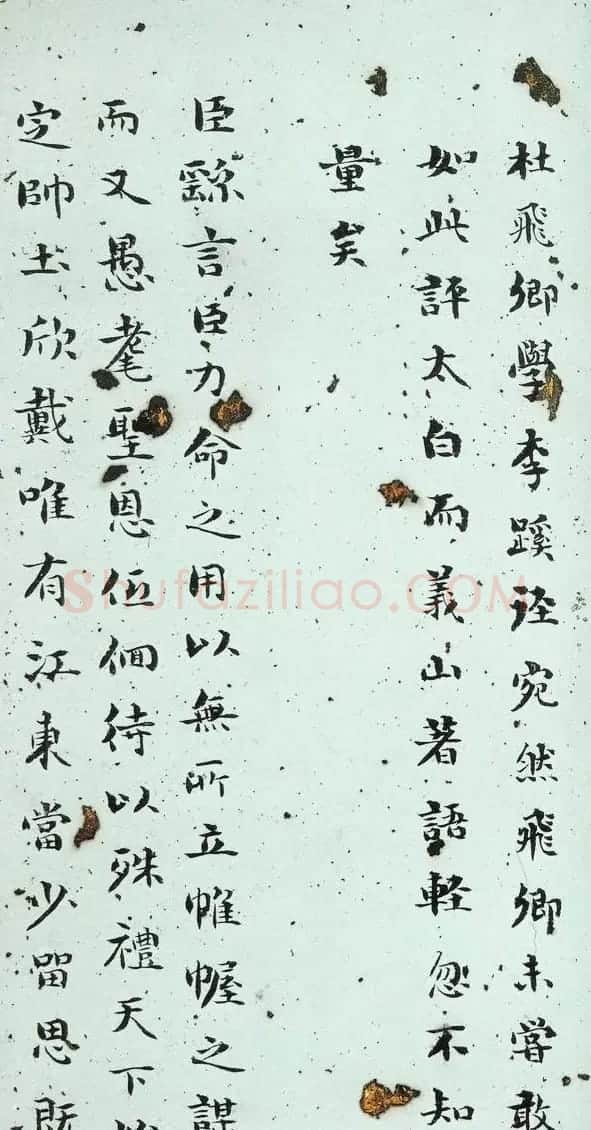 杜飛卿學李蹊迳宛然飛卿未嘗敢
如此評太白而義山著語輕忽不知
量矣
臣繇言臣力命之用以無所立帷幄之謀
而又愚耄聖恩伍佪待以殊禮天下
定帥土欣戴唯有江東當少留思既
Shufaziliao.COM